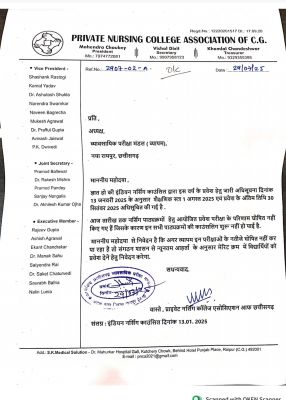 Regd No : 122202015117 Dt. 17.09.20
PRIVATE NURSING COLLEGE ASSOCIATION OF C.G.
Mahendra Choubey
President
Vishal Dixit
Secretary
Khamlal Chandeshwer
Treasurer
Ref.No.: 2907-02-A
OK
Date 29/07/25
• Vice President:
Shashank Rastogi
Kamal Yadav
Dr. Ashutosh Shukla
Narendra Sawarkar
Naveen Bagrecha
Mukesh Agrawal
Dr. Praful Gupta
Avinash Jaiswal
P.K. Dwivedi
• Joint Secretary:
Pramod Baliwal
Dr. Rakesh Mishra
Pramod Pandey
Sanjay Nongalia
Dr. Akhilesh Kumar Ojha
• Executive Member:
Rajeev Gupta
Ashish Agrawal
Ekant Chandaker
Dr. Manak Sahu
Satyendra Rai
Dr. Saket Chaturvedi
Saurabh Bafna
Nalin Lunia
प्रति ,
अध्यक्ष,
व्यावसायिक परीक्षा मंडल (व्यापम),
नया रायपुर, छत्तीसगढ़
माननीय महोदया ,
ज्ञात हो की इंडियन नर्सिंग काउंसिल द्वारा इस वर्ष के प्रवेश हेतु जारी अधिसूचना दिनांक
13 जनवरी 2025 के अनुसार शैक्षणिक सत्र 1 अगस्त 2025 एवं प्रवेश के अंतिम तिथि 30
सितंबर 2025 अधिसूचित की गई है .
आज तारीख तक नर्सिंग पाठ्यक्रमों हेतु आयोजित प्रवेश परीक्षा के परिणाम घोषित नहीं
किए गए हैं जिसके कारण इन सभी पाठ्यक्रमों की काउंसलिंग शुरू नहीं हो पाई है.
माननीय महोदया से निवेदन है कि अगर व्यापम इन परीक्षाओं के नतीजे घोषित नहीं कर
पा रहा है तो शासन से न्यूनतम आहर्ता के अनुसार मेरिट क्रम में विद्यार्थियों को
प्रवेश देने हेतु निवेदन करेगा.
सधन्यवाद.
वास्ते , प्राइवेट नर्सिंग कॉलेज एसोसिएशन आफ छत्तीसगढ़
संलग्न : इंडियन नर्सिंग काउंसिल दिनांक 13.01. 2025
Add.: S.K.Medical Solution - Dr. Mahunkar Hospital Gali, Kutchery Chowk, Behind Hotel Punjab Place, Raipur (C.G.) 492001
Scanned with OKEN Scanner